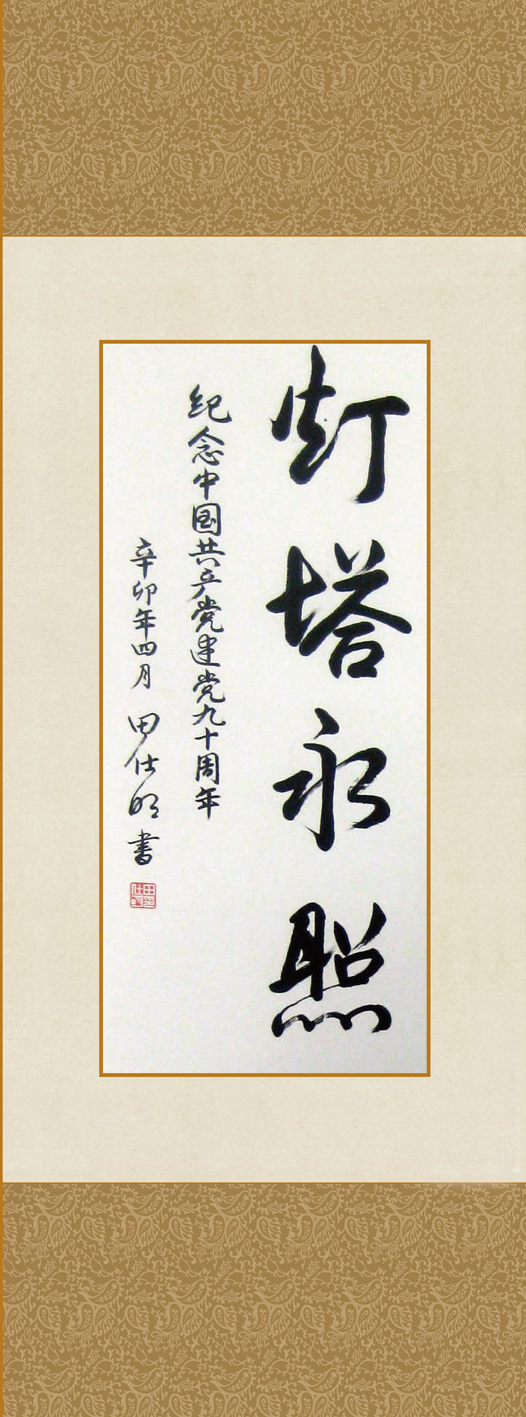 灯塔永照
纪念中国共产党建党九十周年
辛卯年四月 田仕明 书